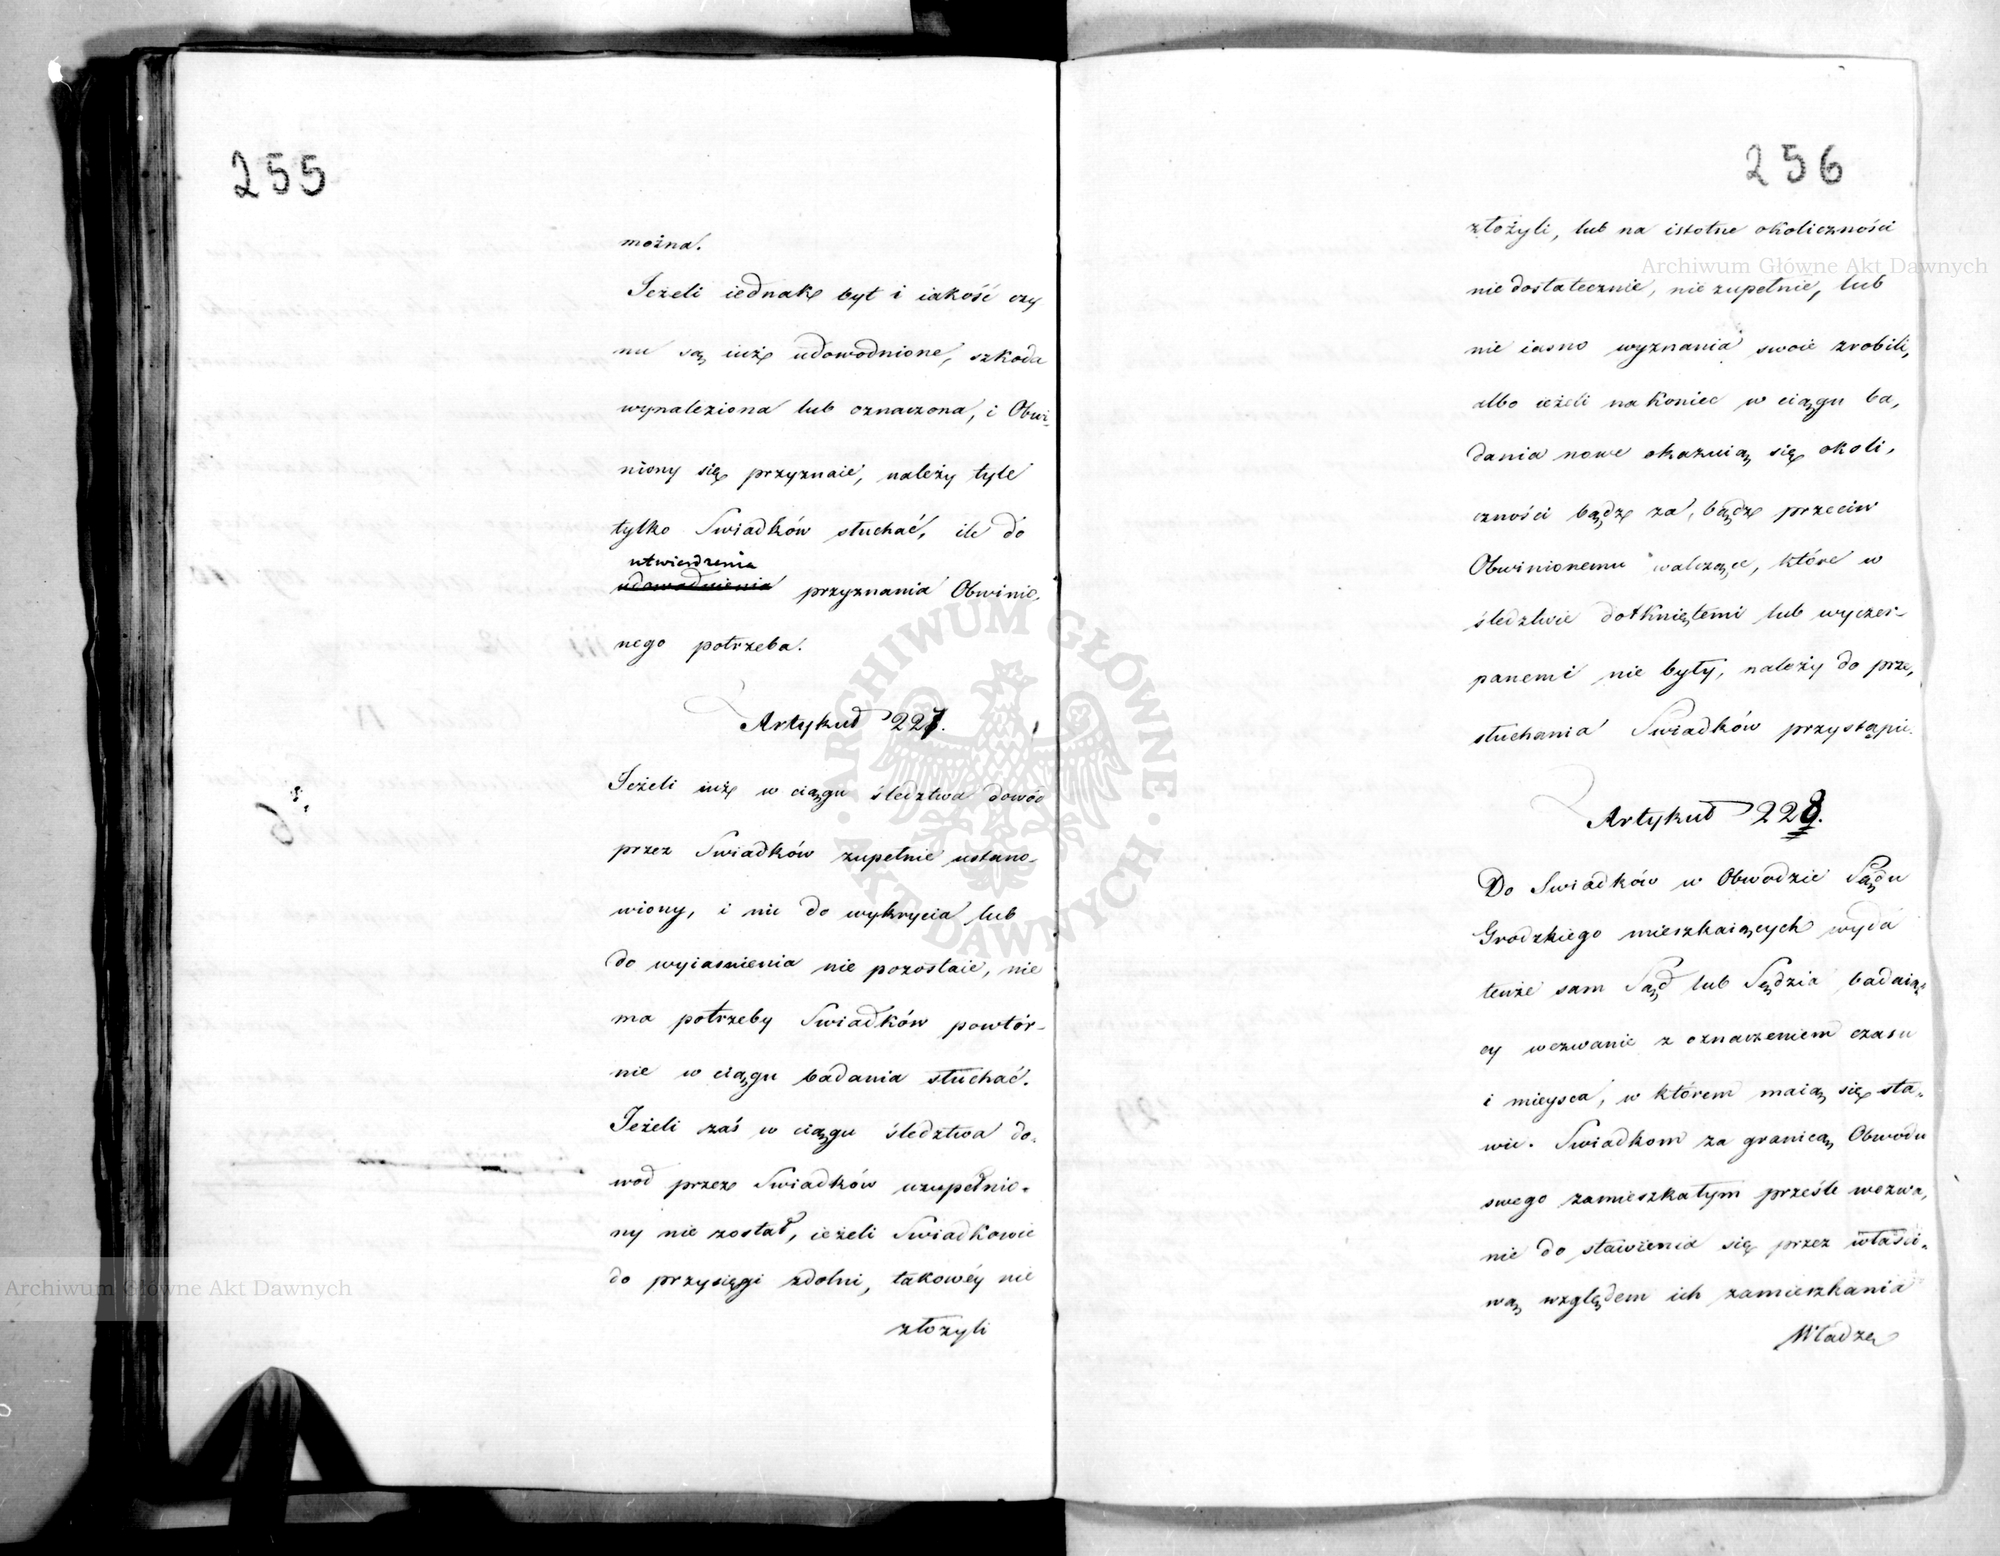 255
można.
Jeżeli iednakże byt i iakość czy
nu są iuż udowodnione, szkoda
wynaleziona lub oznaczona, i Obwi-
niony się przyznaie, należy tyle
tylko Swiadków słuchać, ile do
utwierdzenia
udowodnienia przyznania Obwinio,
nego potrzeba.
Artykuł 227.
Jeżeli iuż w ciągu śledztwa dowód
przez Swiadków zupełnie ustano-
wiony, i nic do wykrycia lub
do wyiasnienia nie pozostaie, nie
ma potrzeby Swiadków powtór-
nie w ciągu badania słuchać.
Jeżeli zaś w ciągu śledztwa do-
wod przez Swiadków uzupełnio-
ny nie został, ieżeli Swiadkowie
do przysięgi zdolni, takowéy nie
złożyli
256
złożyli, lub na istotne okoliczności
niedostatecznie, niezupełnie, lub
nie iasno wyznania swoie zrobili,
albo ieżeli nakoniec w ciągu ba,
dania nowe okazuią się okoli,
czności bądź za, bądź przeciw
Obwinionemu walczące, które w
śledztwie dotkniętemi lub wyczer-
panemi nie były, należy do prze,
słuchania Swiadków przystąpić.
Artykuł 228.
Do Swiadków w Obwodzie Sądu
Grodzkiego mieszkaiących wyda
tenże sam Sąd lub Sędzia badaią-
cy wezwanie z oznaczeniem czasu
i mieysca, w którem maią się sta-
wić. Swiadkom za granicą Obwodu
swego zamieszkałym prześle wezwa,
nie do stawienia się przez właści-
wą względem ich zamieszkania
Władzę
Archiwum Główne Akt Dawnych
Archiwum Główne Akt Dawnych
ARCHIWUM GŁÓWNE · AKT DAWNYCH ·